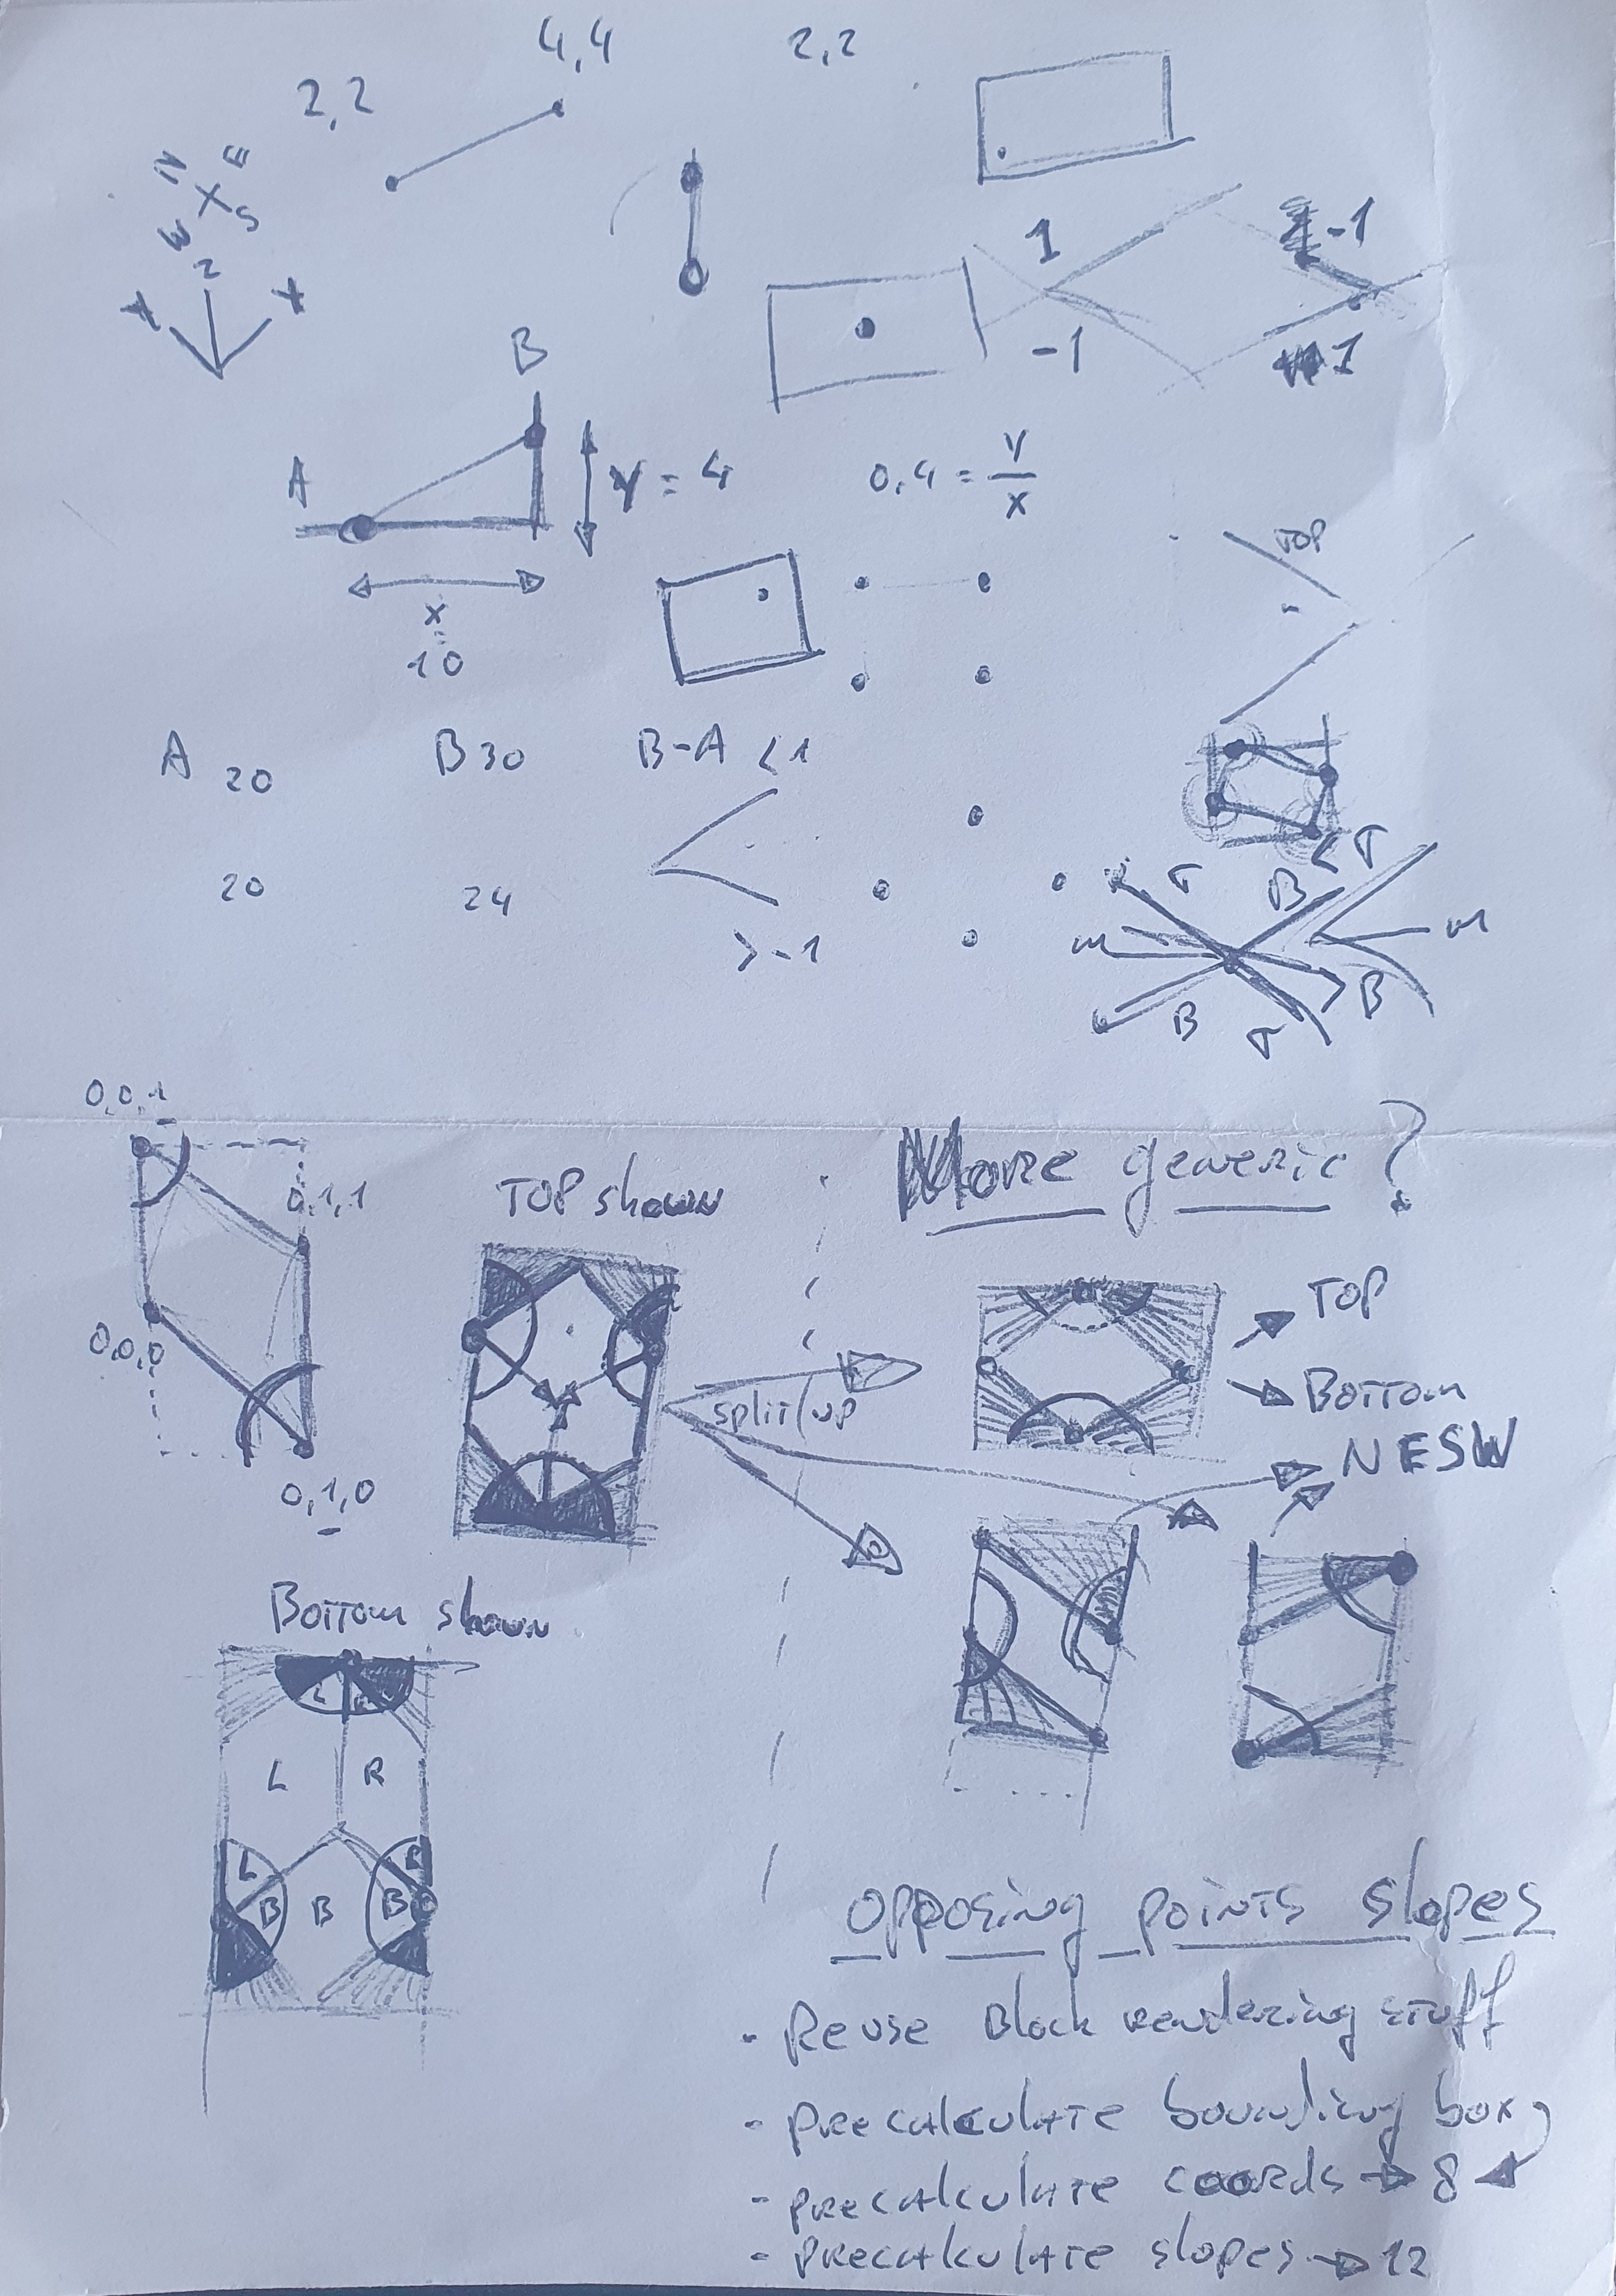 4,4
2,2
2,2
N E
W S
Z
Y X
1
-1
-1
1
B
A
Y = 4
0,4 = Y/X
X
=
10
TOP
A 20
B 30
B-A < 1
20
24
> -1
T
B
< T
m
m
B
T
> B
0,0,1
0,1,1
0,0,0
0,1,0
TOP shown
More generic?
split/up
TOP
Bottom
NESW
Bottom shown
L
L R
L
B B B
Opposing points slopes
- Reuse Block rendering stuff
- precalculate bounding box
- precalculate coords → 8
- precalculate slopes → 12